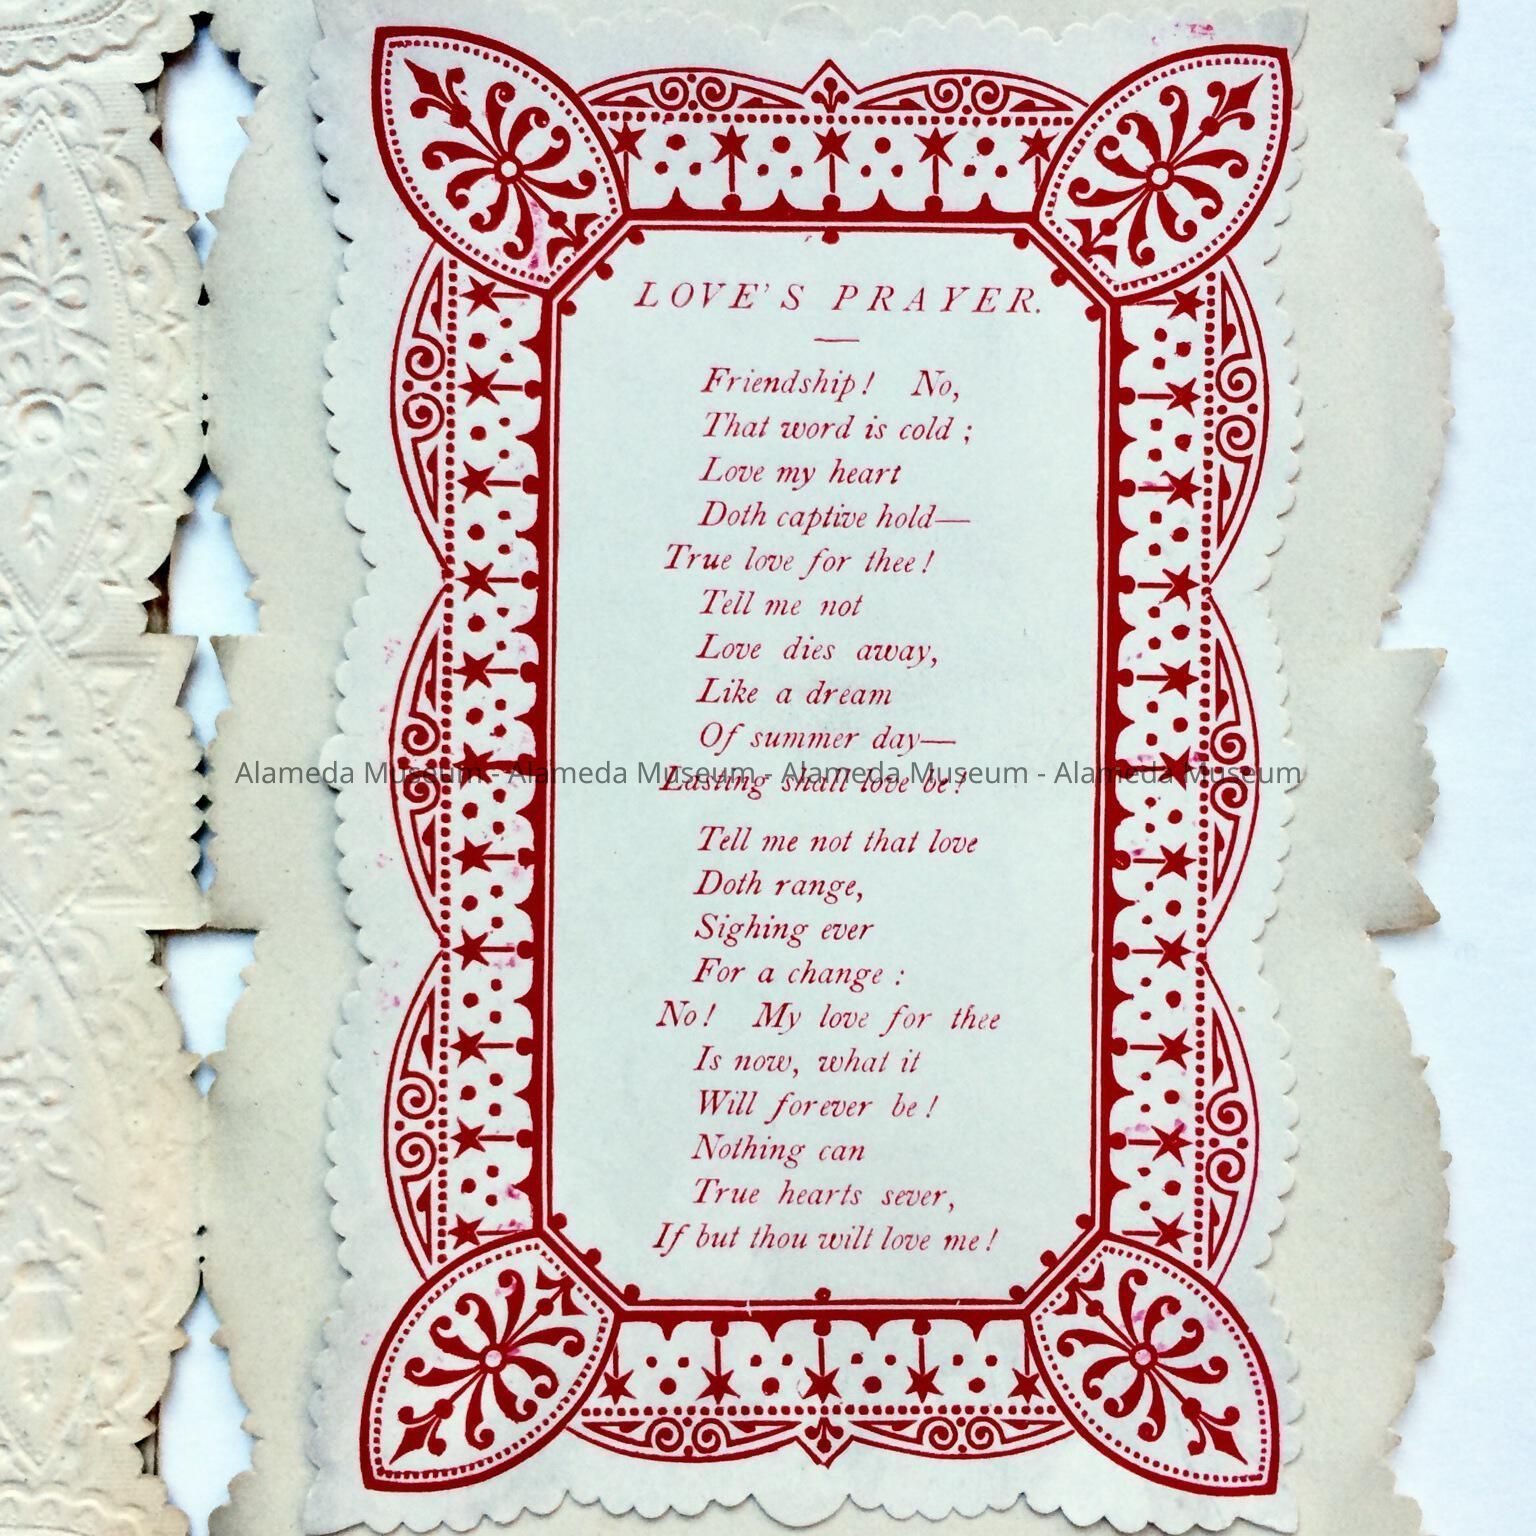 LOVE'S PRAYER.
Friendship! No,
That word is cold;
Love my heart
Doth captive hold—
True love for thee!
Tell me not
Love dies away,
Like a dream
Of summer day—
Alameda Museum - Alameda Museum - Alameda Museum - Alameda Museum
Lasting shall love be!
Tell me not that love
Doth range,
Sighing ever
For a change:
No! My love for thee
Is now, what it
Will forever be!
Nothing can
True hearts sever,
If but thou wilt love me!